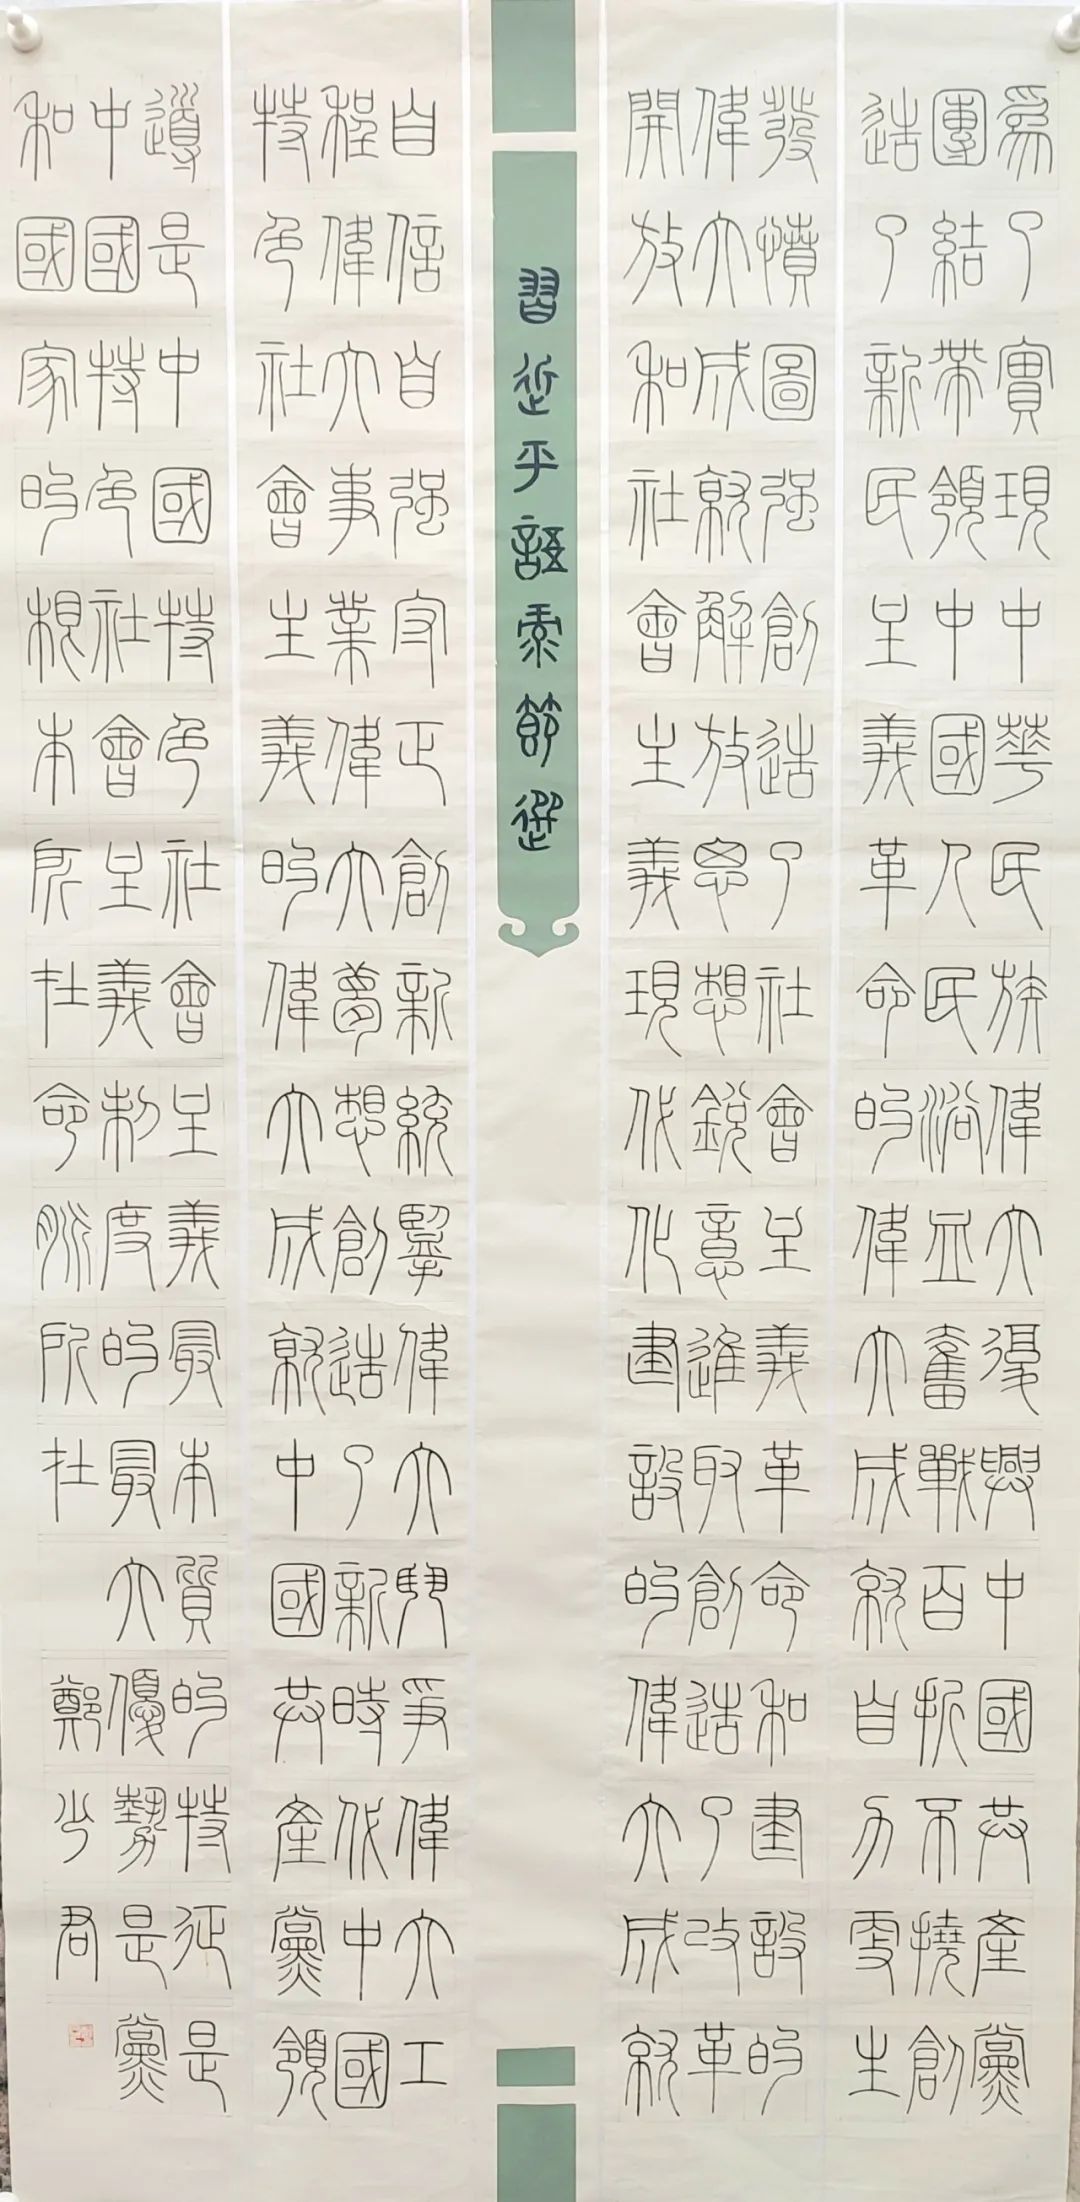 爲了實現中華民族偉大復興中國共產黨
團結帶領中國人民浴血奮戰百折不撓創
造了新民主義革命的偉大成就自力更生
發憤圖强創造了社會主義革命和建設的
偉大成就解放思想銳意進取創造了改革
開放和社會主義現代化建設的偉大成就
習近平語彔節選
自信自强守正創新統擥偉大鬥爭偉大工
程偉大事業偉大夢想創造了新時代中國
特色社會主義的偉大成就中國共產黨領
導是中國特色社會主義最本質的特征是
中國特色社會主義制度的最大優勢是黨
和國家的根本所在命脈所在
鄭少君